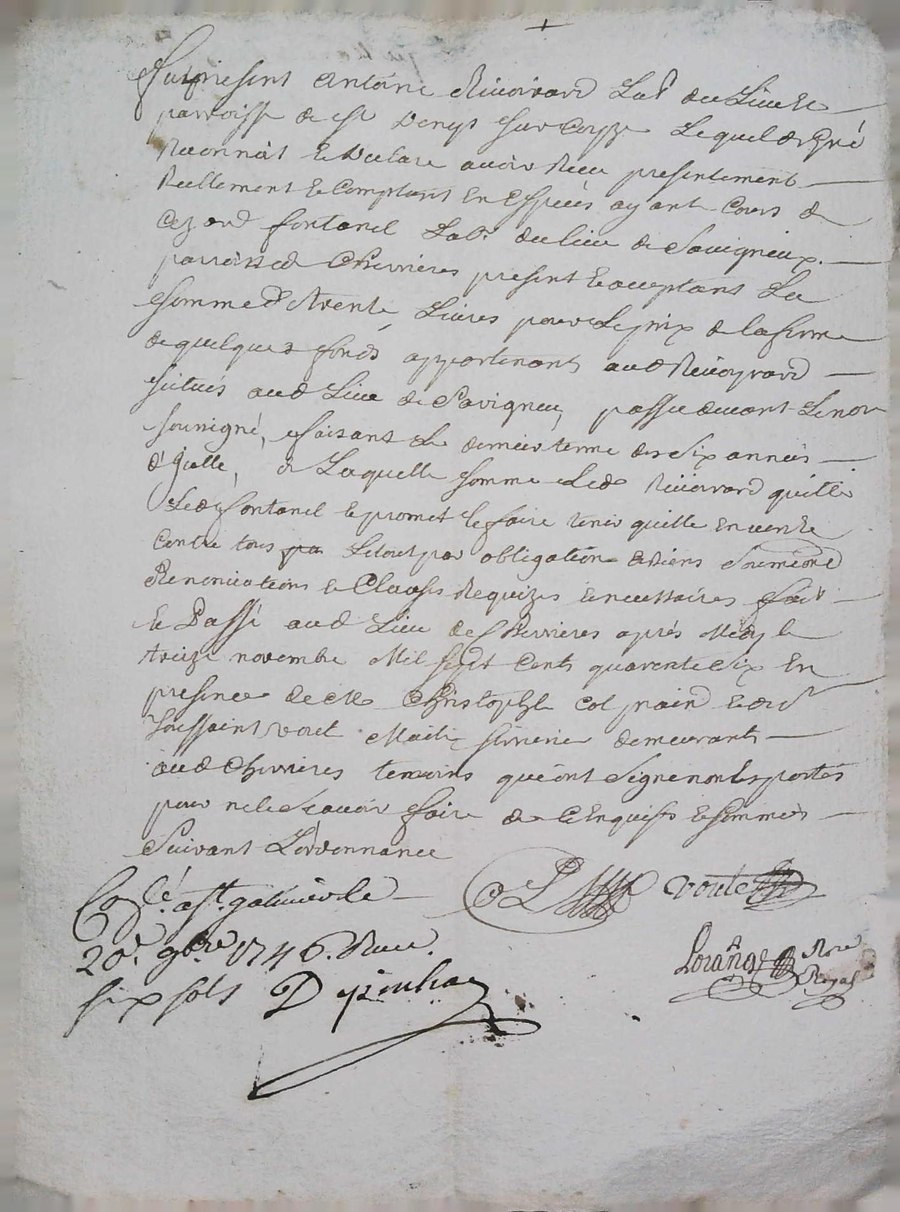 Fut présent Antoine Rivoirard Lab.r du Lieu &
parroisse de St Denys sur Coyze Lequel de Gré
Reconnait & Declare avoir Receu presentement
Reellement & Comptant En Espèces ayant Cours de
fontanel Lab.r du lieu de Savigneux
parroisse de Chevrières present & acceptant La
somme de trente Livres pour Le prix de la ferme
de quelques fonds appartenants aud Rivoyrard
situés aud Lieu de Savigneu, passée devant Le no.re
soussigné, faisant Le dernier terme des six années
d'jcelle, de Laquelle somme Led. Rivoirard quitte
Led. fontanel & promet le faire tenir quitte Envers &
Contre tous Le tout par obligation de biens soumions
Renonciations & Clauses Requizes & necessaires fait
& Passé aud Lieu de Chevrières après Midy le
treize novembre Mil sept Cents quarente six En
presence de Me Christophle Col & de
Toussaint voute demeurants
aud Chevrières temoins qui ont Signé non les parties
pour ne le Scavoir faire de ce Enquises & sommées
Suivant L'ordonnance
voute
Co.lé a St. galmier le
20.e 9bre 1746. Receu
six sols
Lorange No.re
Royal